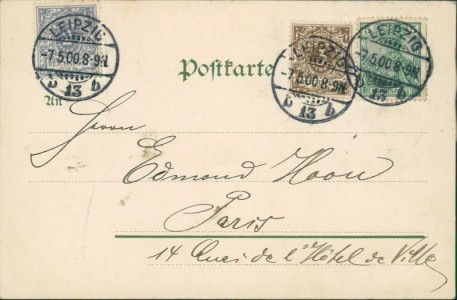 LEIPZIG
-7.5.00.8-9N.
13 b
LEIPZIG
-7.5.00.8-9N.
13 b
LEIPZIG
-7.5.00.8-9N.
13 b
Postkarte
An
Herrn
Edmond
Paris
14 Quai de l'Hôtel de Ville